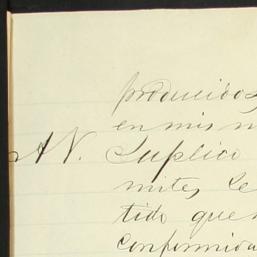 producidos
en mis n
A V. Suplico
mites, se
tido que
conformida